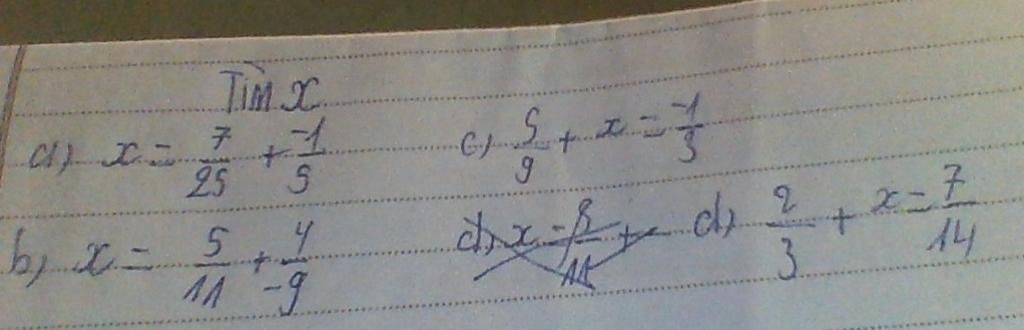 Tìm x
a) x = 7/25 + -1/5
c) 5/9 + x = -1/3
b) x = 5/11 + 4/-9
d) x - 8/11 +
d) 2/3 + x = 7/14